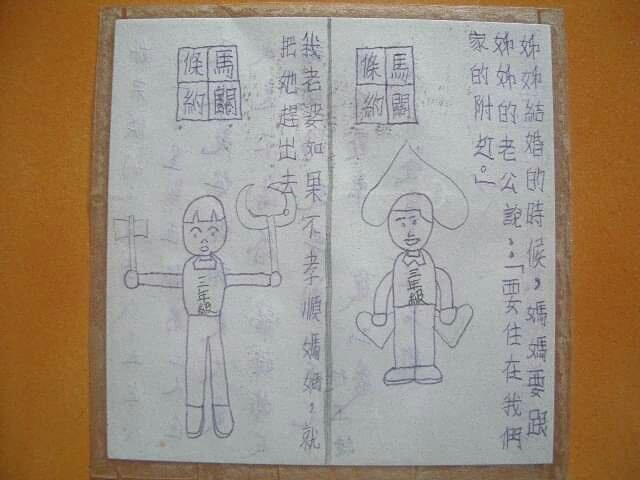 姊姊結婚的時候，媽媽要跟
姊姊的老公說：「要住在我們
家的附近。」
馬關
條約
三年級
我老婆如果不孝順媽媽，就
把她趕出去。
馬關
條約
三年級